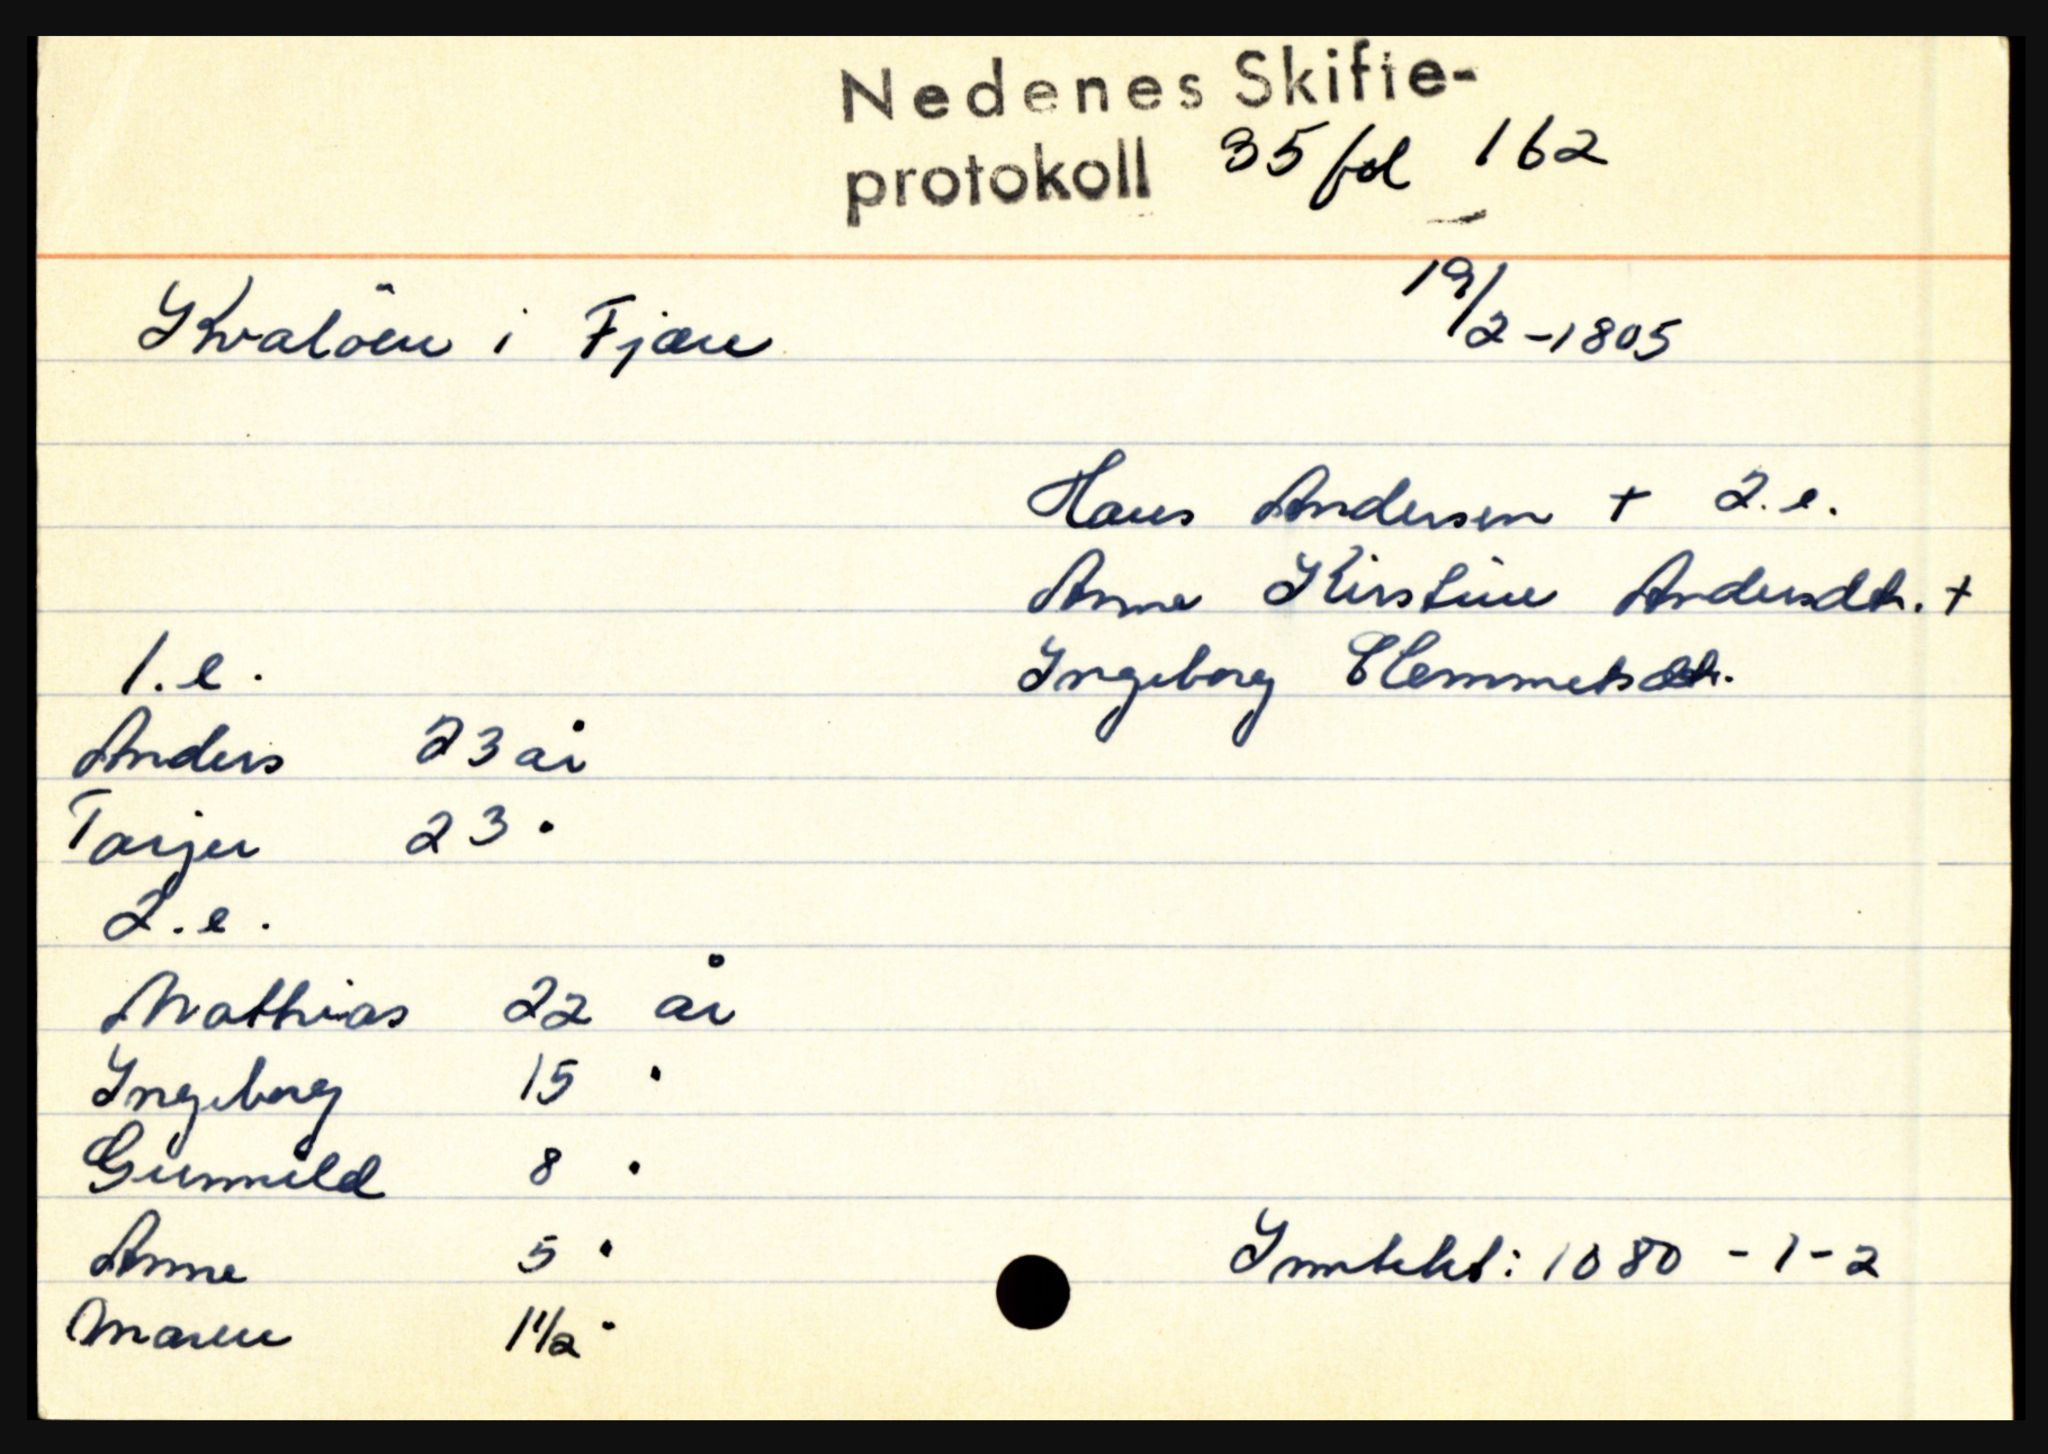 Nedenes Skifte-
protokoll 35 fol 162
Kvalöen i Fjære
19/2-1805
Hans Andersen + 2.e.
Anne Kirstine Andersdtr. +
Ingeborg Clemmetsdtr.
1.e.
Anders 23 år
Tarjer 23 "
2.e.
Mathias 22 år
Ingeborg 15 "
Gunnild 8 "
Anne 5 "
Maren 1 1/2 "
Inntekt: 1080 - 1 - 2